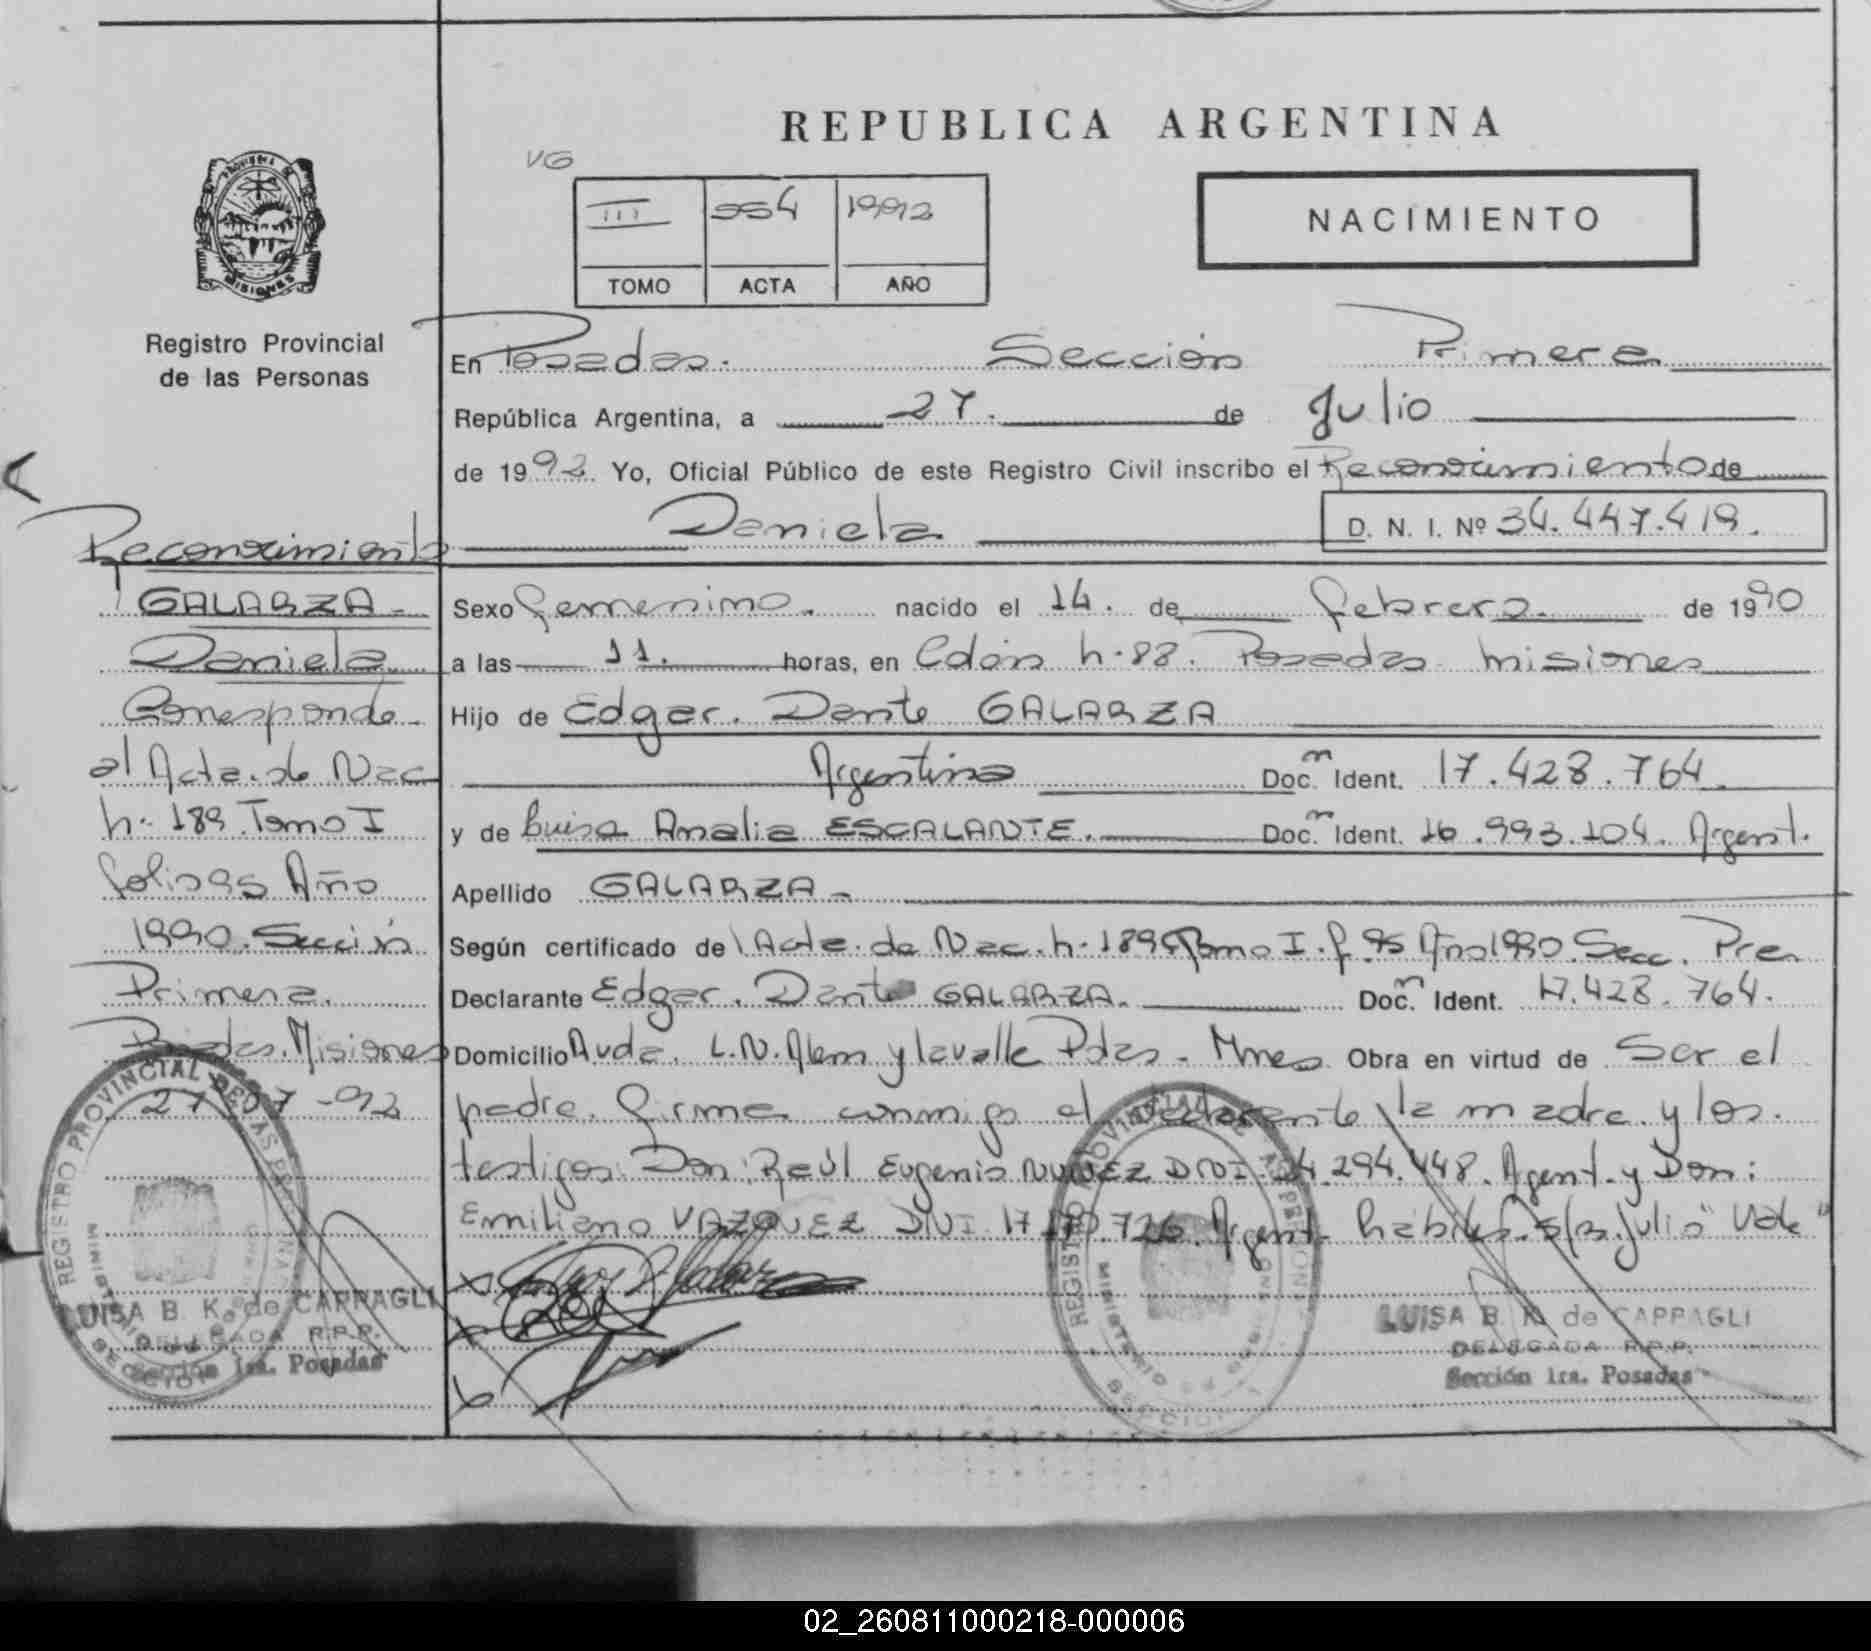 REPUBLICA ARGENTINA
VG
III 554 1992
TOMO ACTA AÑO
NACIMIENTO
MISIONES
Registro Provincial
de las Personas
En Posadas. Sección Primera
República Argentina, a 27. de Julio
de 1992. Yo, Oficial Público de este Registro Civil inscribo el Reconocimiento de
Daniela D. N. I. Nº 34.447.419.
Sexo femenino. nacido el 14. de febrero. de 1990
a las 11. horas, en Cdón h.88. Posadas Misiones
Hijo de Edgar. Dante GALARZA
Argentino Doc.m Ident. 17.428.764.
y de Luisa Analia ESCALANTE. Doc.m Ident. 16.993.104. Argent.
Apellido GALARZA
Según certificado de Acta. de Nac. h. 189 Tomo I. f. 95 Año 1990. Secc. Pra
Declarante Edgar. Dante GALARZA. Doc.m Ident. 17.428.764.
Domicilio Avda. L.N. Alem y Lavalle Pdas - Mnes Obra en virtud de Ser el
padre. firma conmigo el declarante, la madre. y los.
testigos: Don: Raúl Eugenio NUÑEZ DNI 14.294.448. Argent. y Don:
Emiliano VAZQUEZ DNI 17.170.726. Argent. habiles. S/R. Julio "Vale"
Reconocimiento
GALARZA -
Daniela
Corresponde
al Acta. de Nac
h. 189. Tomo I
folio 95 Año
1990. Sección
Primera.
Posadas. Misiones
27-07-92
REGISTRO PROVINCIAL DE LAS PERSONAS
MINISTERIO DE GOBIERNO
SECCION
LUISA B. K. de CAPPAGLI
DELEGADA R.P.P.
Sección 1ra. Posadas
REGISTRO PROVINCIAL DE LAS PERSONAS
MINISTERIO DE GOBIERNO
SECCION
LUISA B. K. de CAPPAGLI
DELEGADA R.P.P.
Sección 1ra. Posadas
02_260811000218-000006